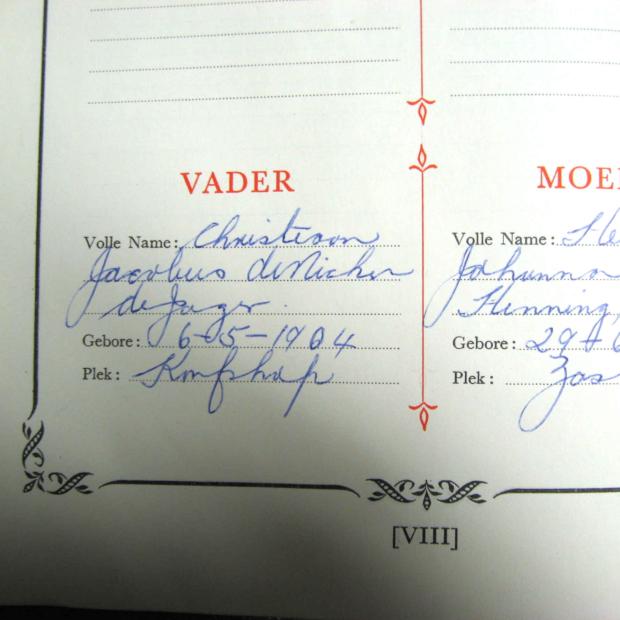 VADER
Volle Name: Christiaan
Jacobus
de Jager.
Gebore: 6-5-1904
Plek:
Volle Name:
Johanna
Henning,
Gebore: 29
Plek: Zas
[VIII]